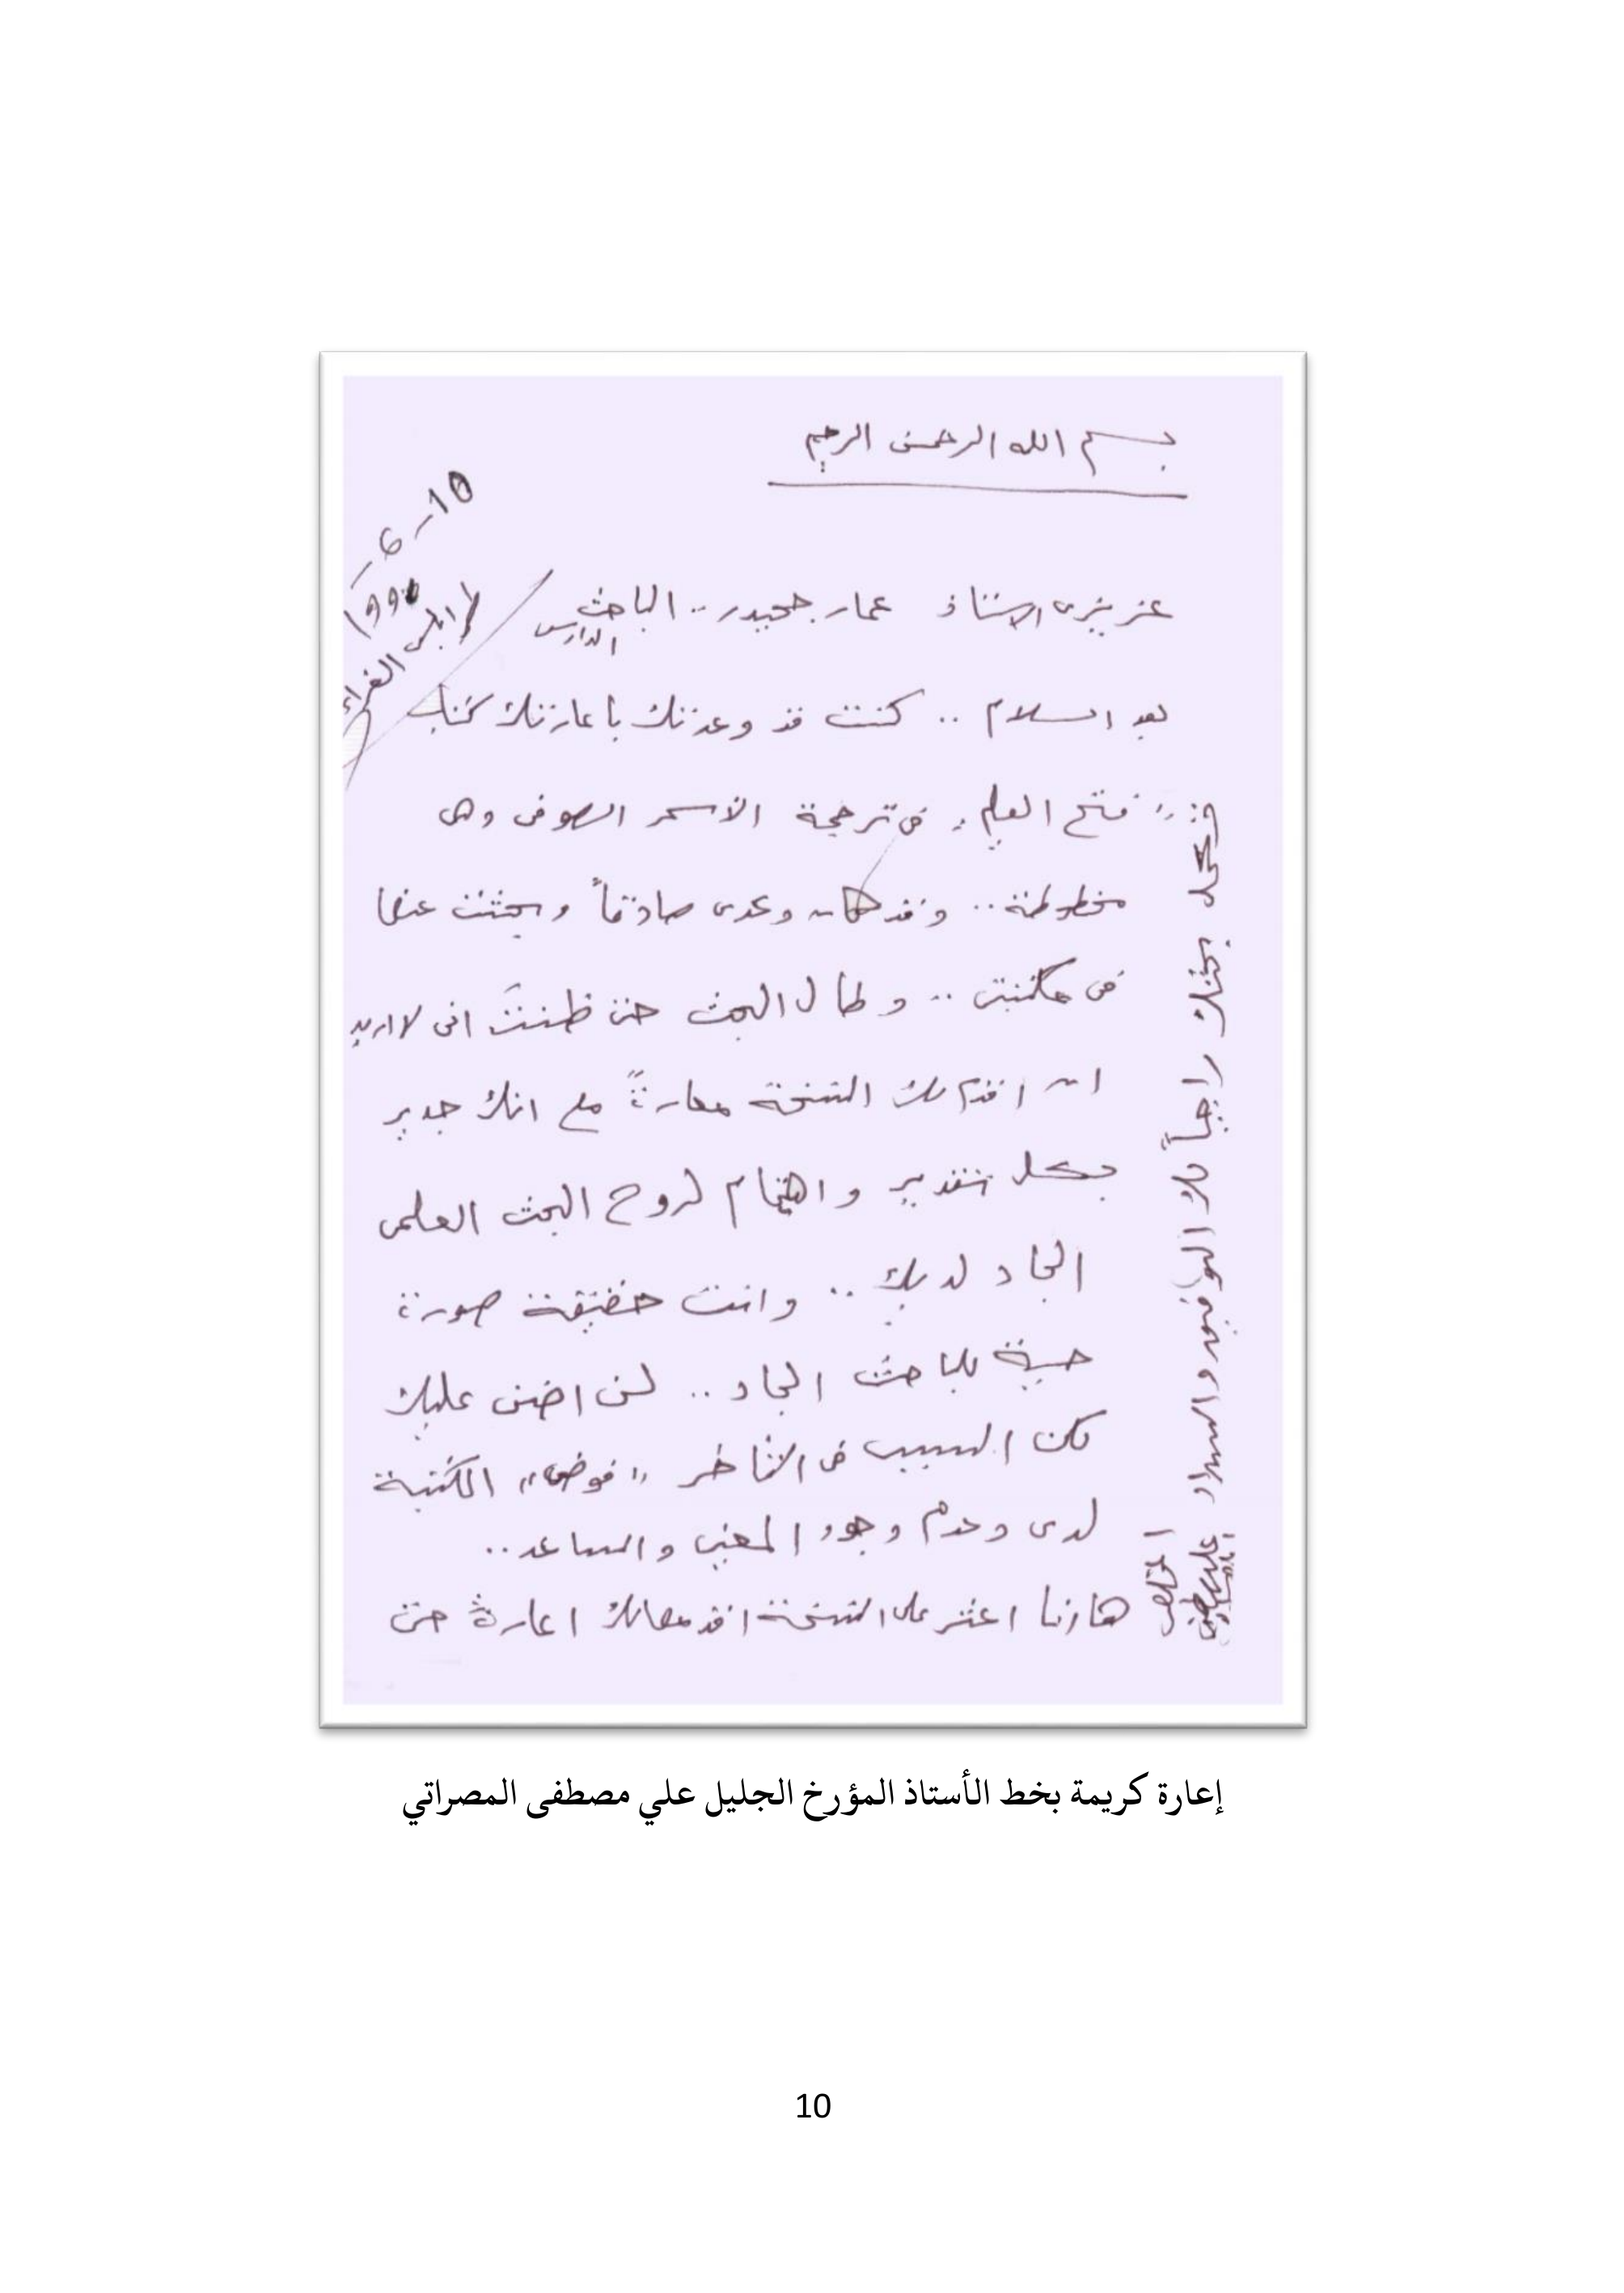 بسم الله الرحمن الرحيم
10-6-
طرابلس الغراء
عزيزى الاستاذ عمار جحيدر .. الباحث
الدارس
بعد السلام .. كنت قد وعدتك باعارتك كتاب
"فتح العليم" فى ترجمة الاسمر الصوفى وهى
مخطوطة .. وقد كان وعدى صادقاً وبحثت عنها
فى مكتبتى .. وطال البحث حتى ظننتَ انى لا اريد
ان اقدم لك النسخة معارةً مع انك جدير
بكل تقدير واهتمام لروح البحث العلمى
الجاد لديك .. وانت حقيقة صورة
حية للباحث الجاد .. لن اضن عليك
لكن السبب فى التأخر "فوضى" المكتبة
لدى وعدم وجود المعين والمساعد ..
ها انا اعثر على النسخة اقدمها لك اعارة حتى
تكمل بحثك راجياً لك التوفيق والسداد
المخلص
على مصطفى المصراتى
إعارة كريمة بخط الأستاذ المؤرخ الجليل علي مصطفى المصراتي
10